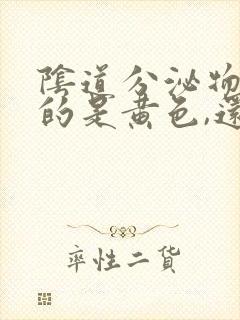 陰道分泌物
的是黃色,還
率性二貨